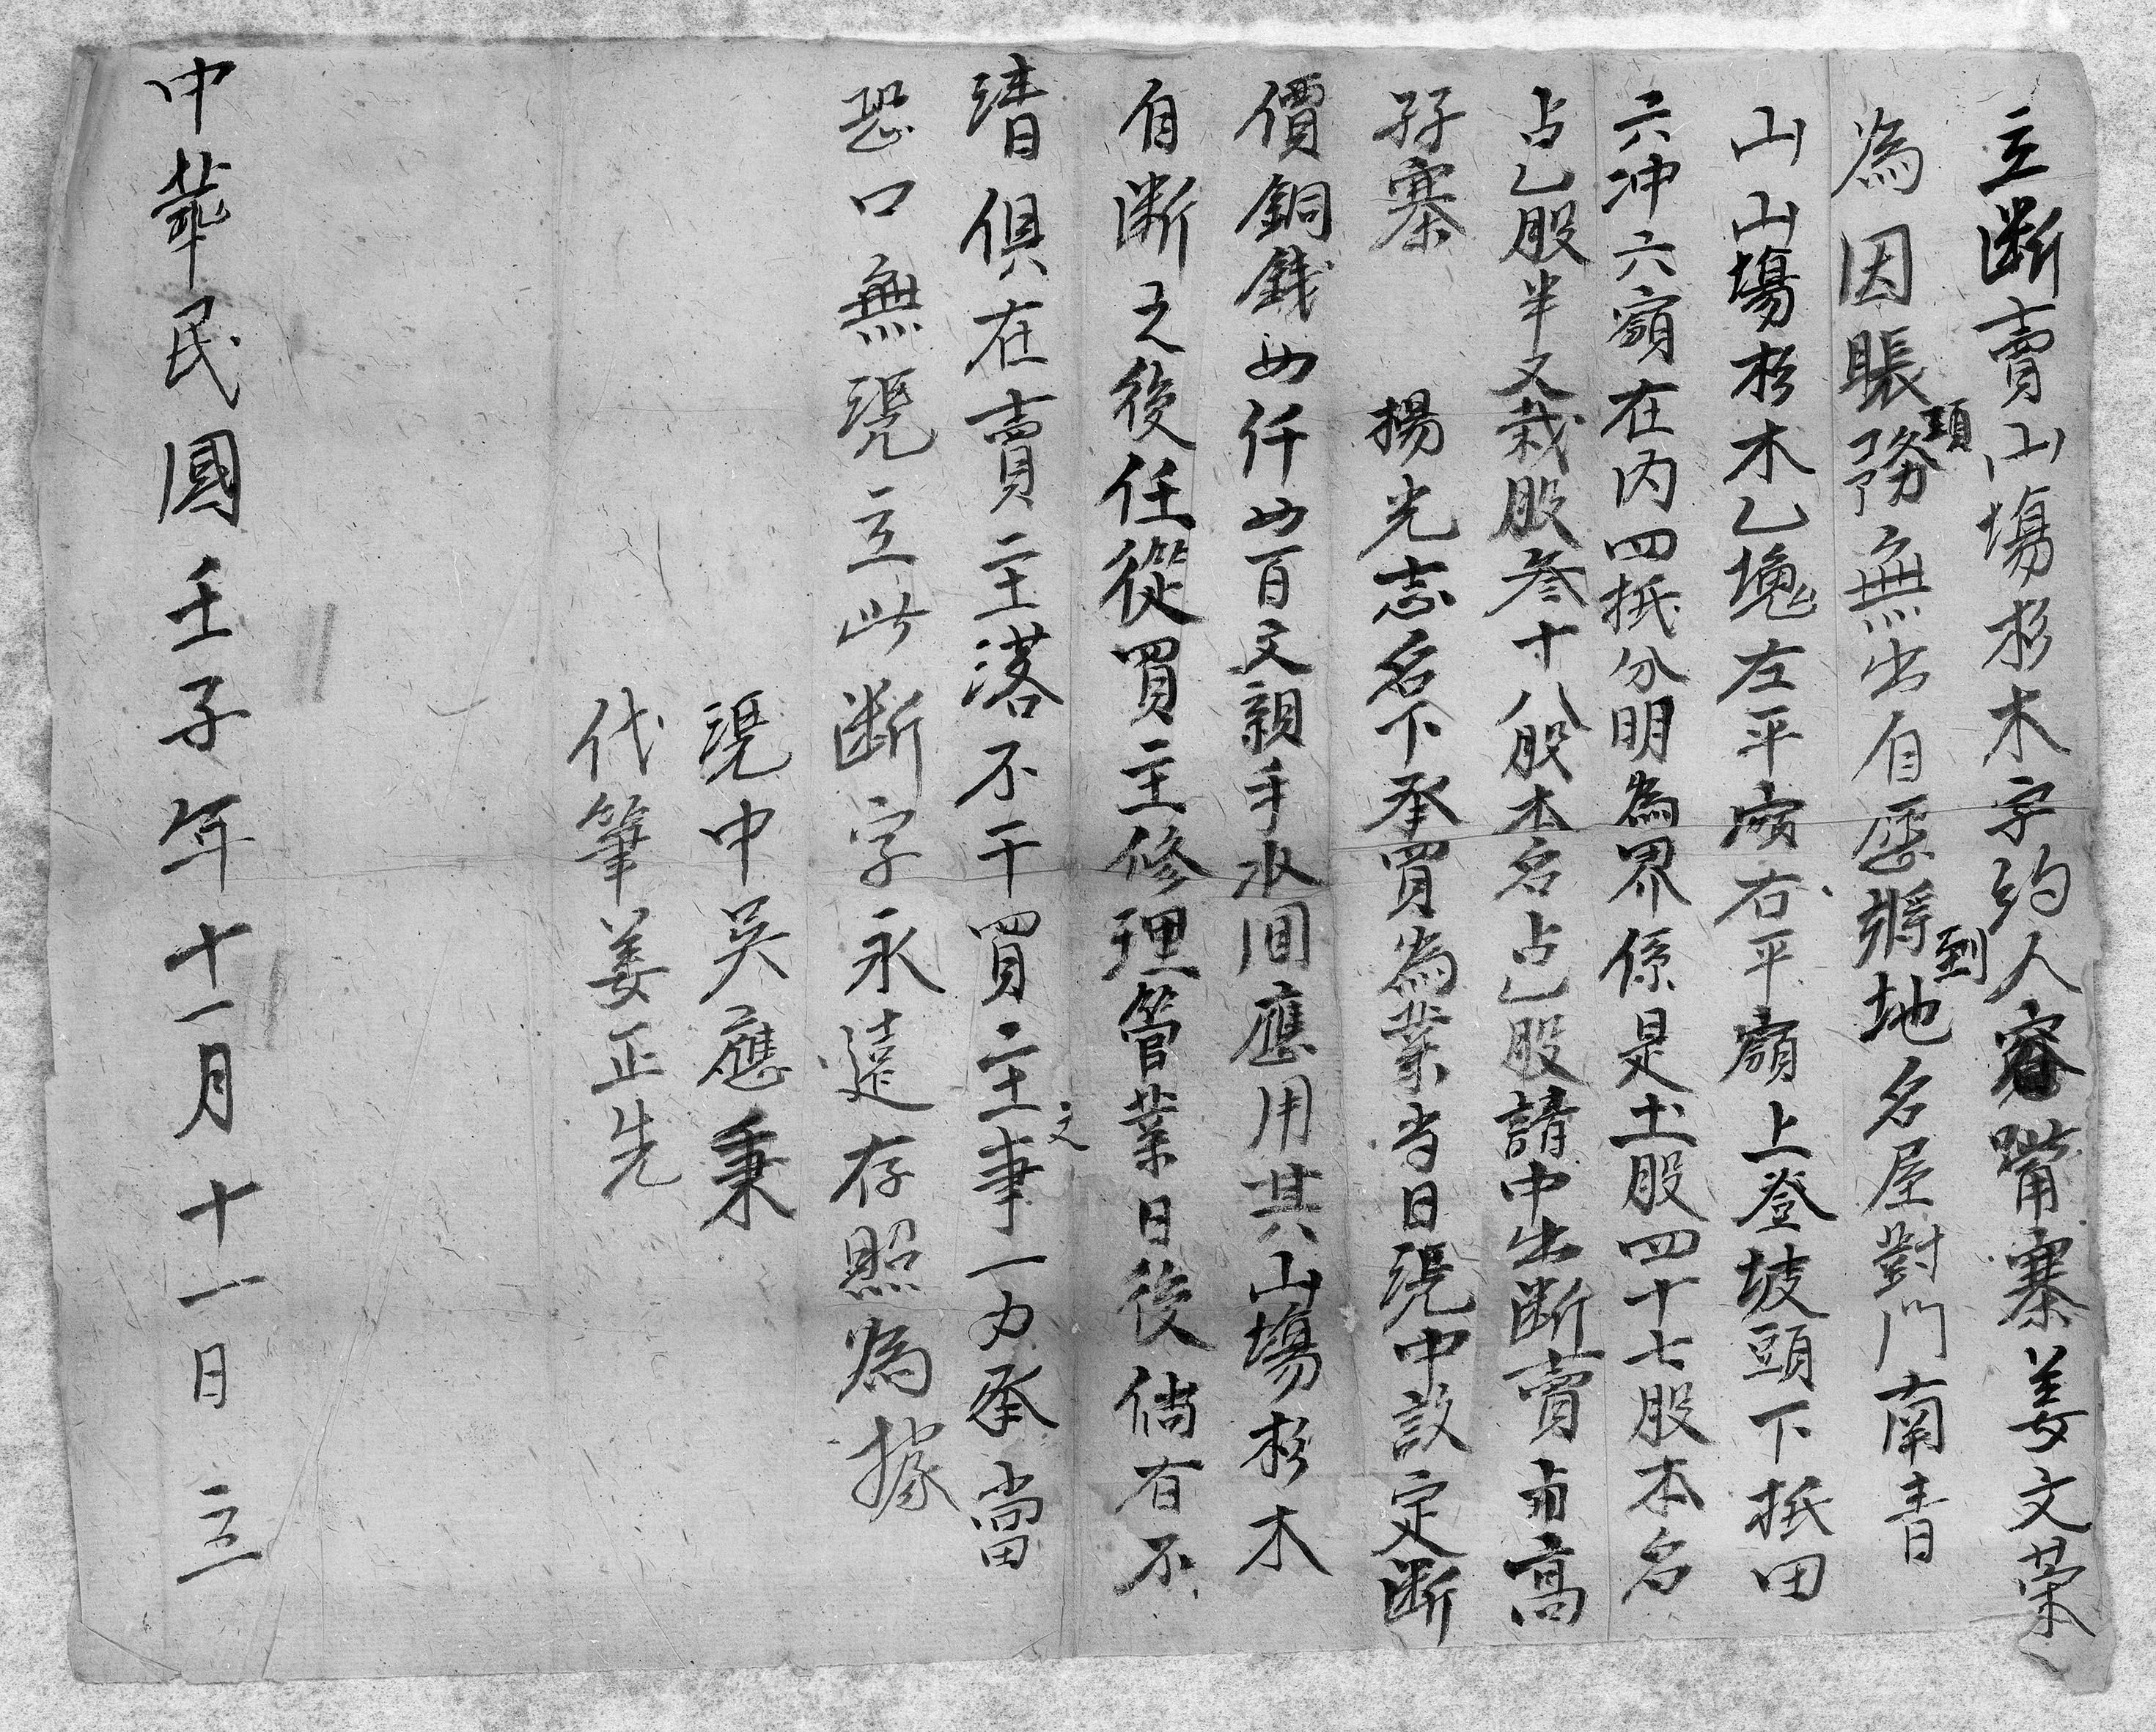 立断賣山塲杉木字約人容嘴寨姜文荣
為因賬務項無出自愿將到地名屋對門南青
山山塲杉木乙塊左平嶺右平嶺上登坡頭下抵田
六冲六嶺在内四抵分明為界係是土股四十七股本名
占乙股半又栽股叁十八股本名占乙股請中出断賣與高
孖寨 揚光志名下承買為業当日凴中議定断
價銅錢四仟四百文親手收囬應用其山塲杉木
自断之後任從買主修理管業日後倘有不
清俱在賣主落不干買主之事一力承當
恐口無凴立此断字永遠存照為據
凴中吴應秉
代筆姜正先
中華民國壬子年十一月十一日 立